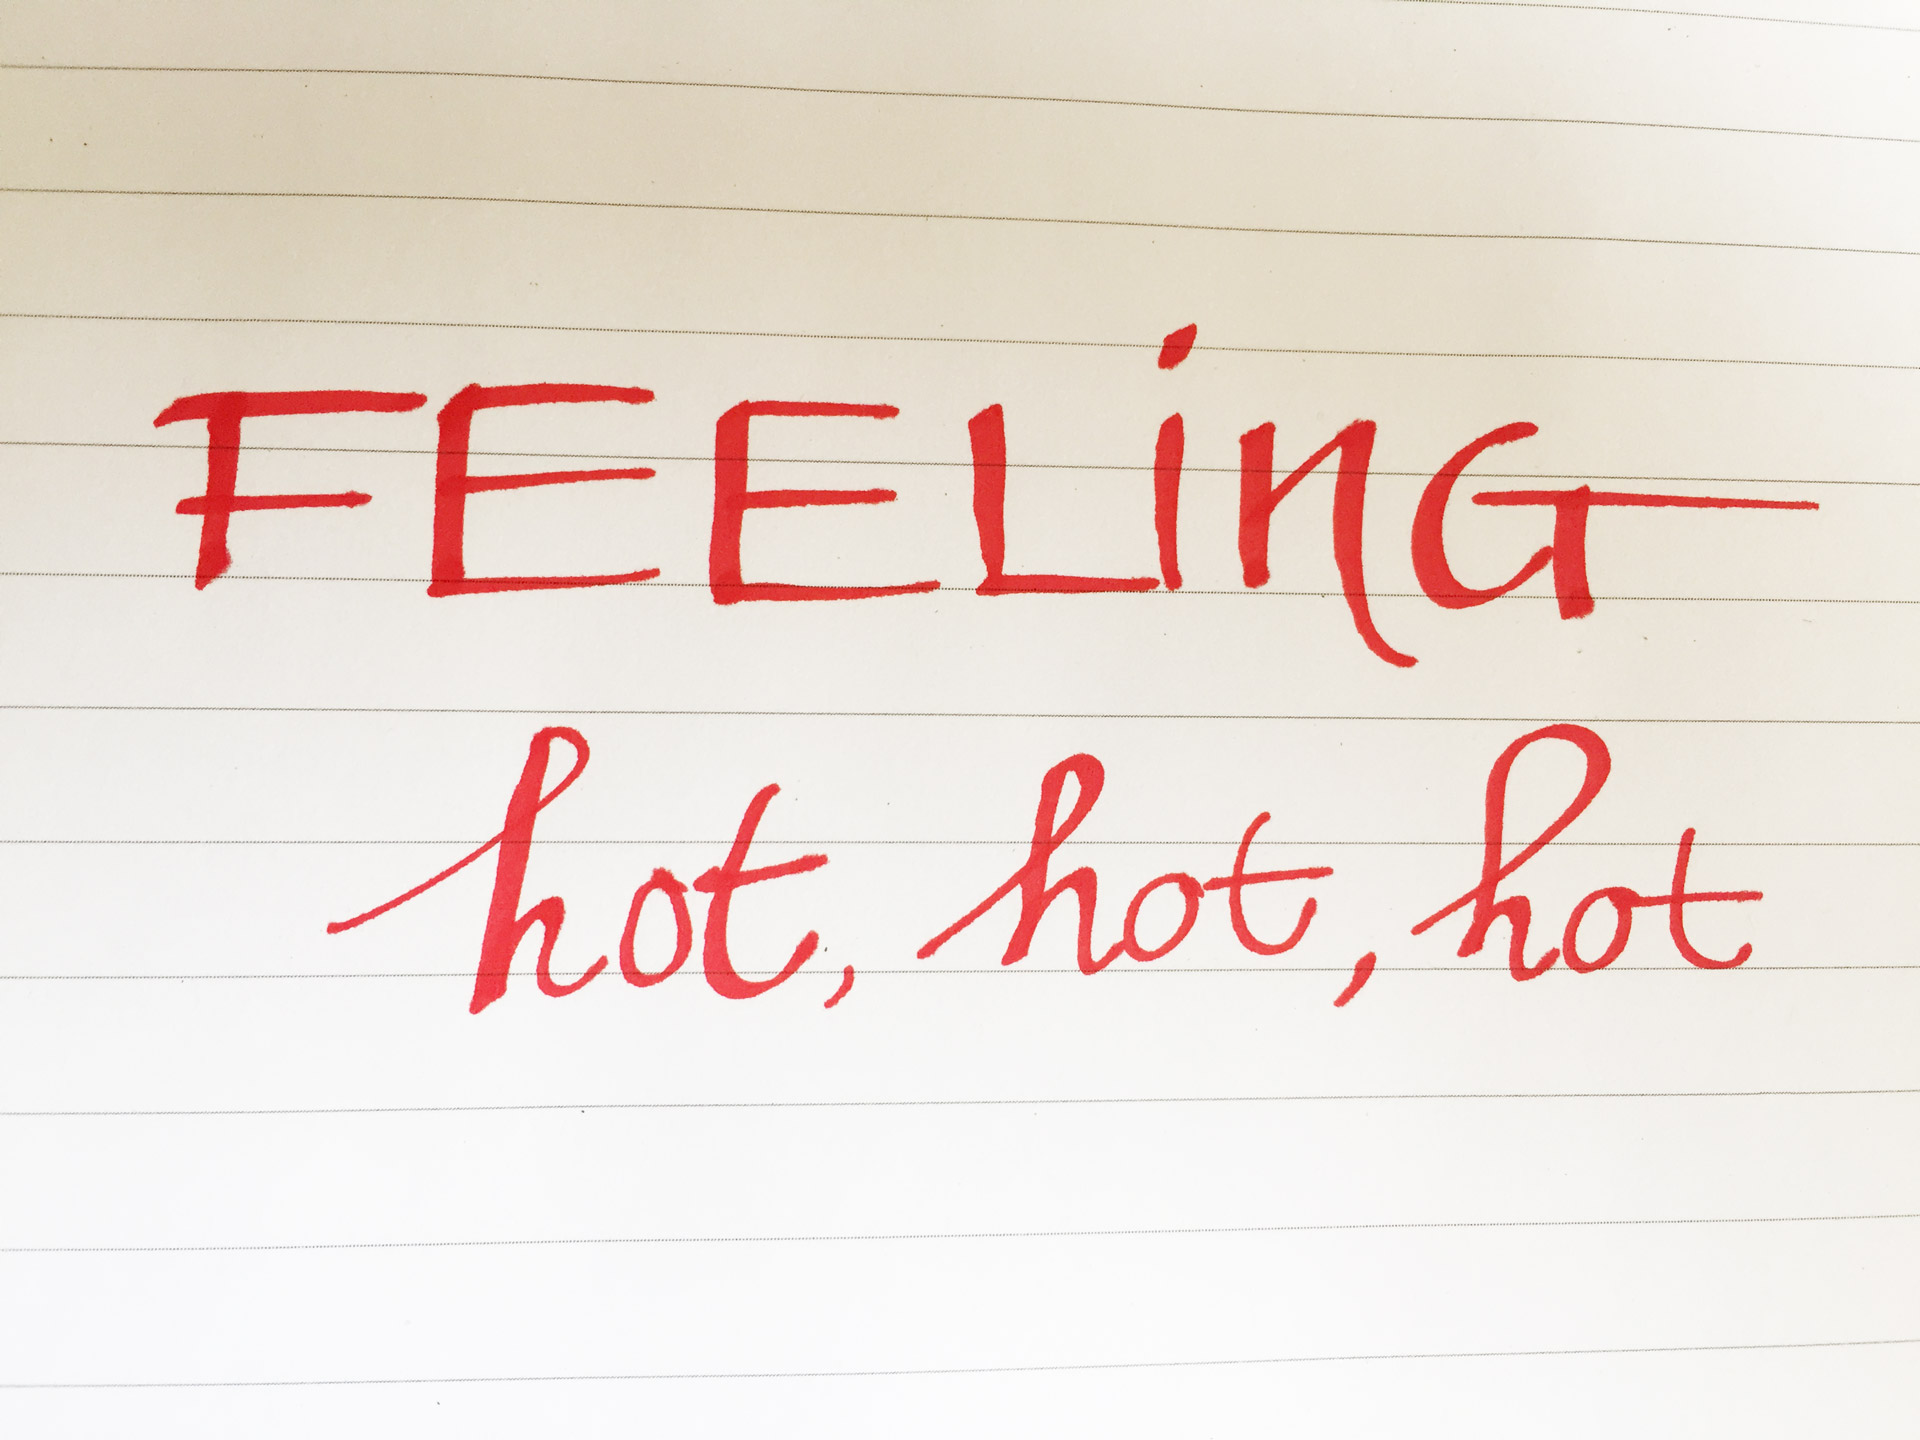 FEELiNG
hot, hot, hot